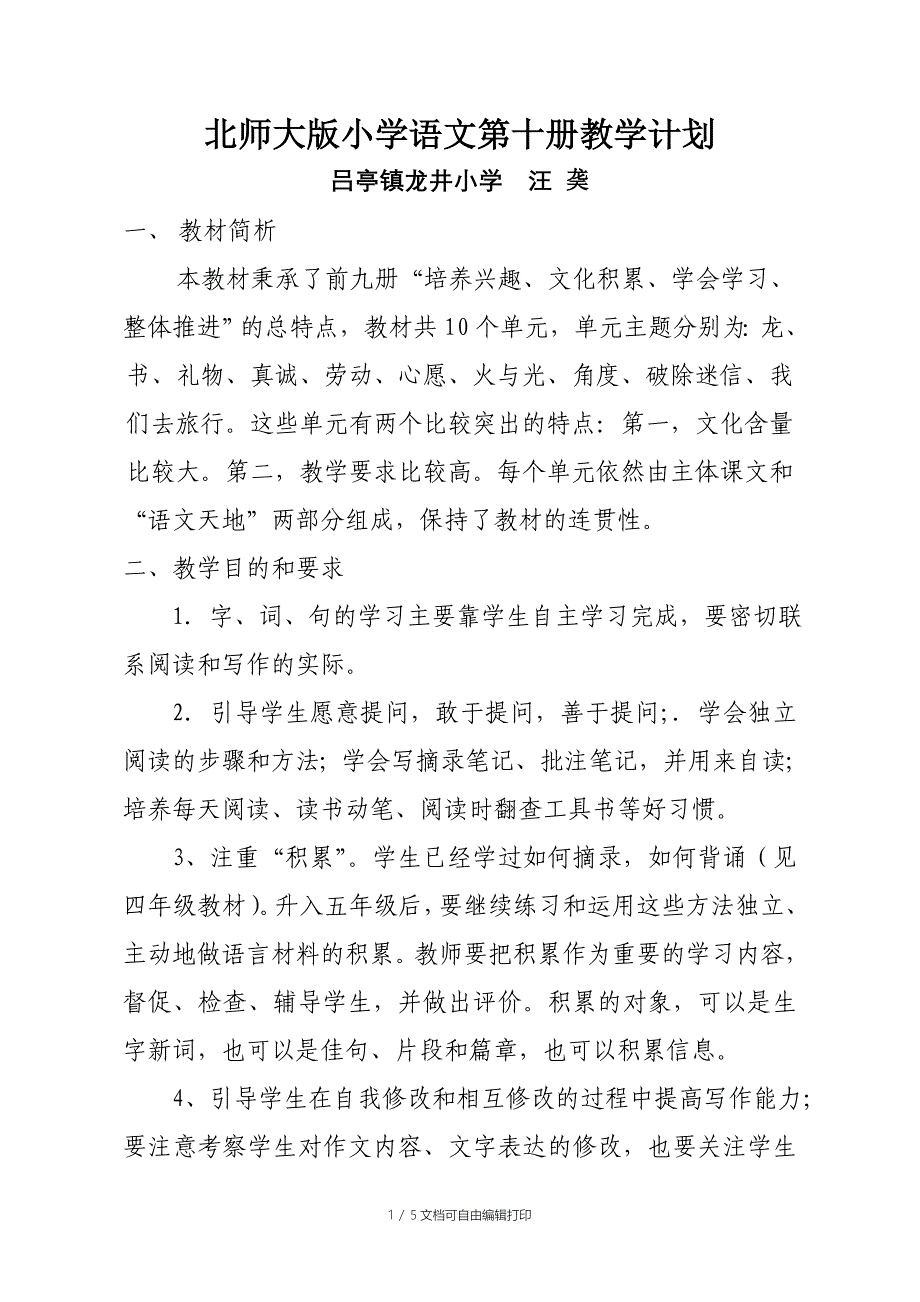 北师大版小学语文第十册教学计划
吕亭镇龙井小学 汪 䶮
一、 教材简析
本教材秉承了前九册“培养兴趣、文化积累、学会学习、
整体推进”的总特点，教材共 10 个单元，单元主题分别为: 龙、
书、礼物、真诚、劳动、心愿、火与光、角度、破除迷信、我
们去旅行。这些单元有两个比较突出的特点: 第一，文化含量
比较大。第二，教学要求比较高。每个单元依然由主体课文和
“语文天地”两部分组成，保持了教材的连贯性。
二、教学目的和要求
1. 字、词、句的学习主要靠学生自主学习完成，要密切联
系阅读和写作的实际。
2. 引导学生愿意提问，敢于提问，善于提问;. 学会独立
阅读的步骤和方法; 学会写摘录笔记、批注笔记，并用来自读;
培养每天阅读、读书动笔、阅读时翻查工具书等好习惯。
3、注重“积累”。学生已经学过如何摘录，如何背诵（见
四年级教材）。升入五年级后，要继续练习和运用这些方法独立、
主动地做语言材料的积累。教师要把积累作为重要的学习内容，
督促、检查、辅导学生，并做出评价。积累的对象，可以是生
字新词，也可以是佳句、片段和篇章，也可以积累信息。
4、引导学生在自我修改和相互修改的过程中提高写作能力;
要注意考察学生对作文内容、文字表达的修改，也要关注学生
1 / 5文档可自由编辑打印